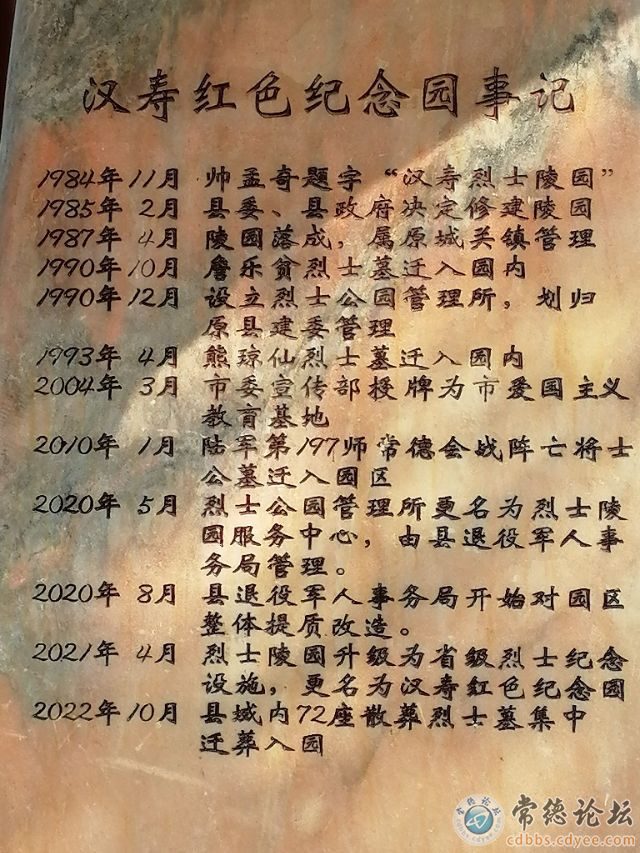 汉寿红色纪念园事记
1984年11月 帅孟奇题字“汉寿烈士陵园”
1985年 2月 县委、县政府决定修建陵园
1987年 4月 陵园落成，属原城关镇管理
1990年10月 詹乐贫烈士墓迁入园内
1990年12月 设立烈士公园管理所，划归
原县建委管理
1993年 4月 熊琼仙烈士墓迁入园内
2004年 3月 市委宣传部授牌为市爱国主义
教育基地
2010年 1月 陆军第197师常德会战阵亡将士
公墓迁入园区
2020年 5月 烈士公园管理所更名为烈士陵
园服务中心，由县退役军人事
务局管理。
2020年 8月 县退役军人事务局开始对园区
整体提质改造。
2021年 4月 烈士陵园升级为省级烈士纪念
设施，更名为汉寿红色纪念园
2022年10月 县域内72座散葬烈士墓集中
迁葬入园
常德论坛
常德论坛
cdbbs.cdyee.com